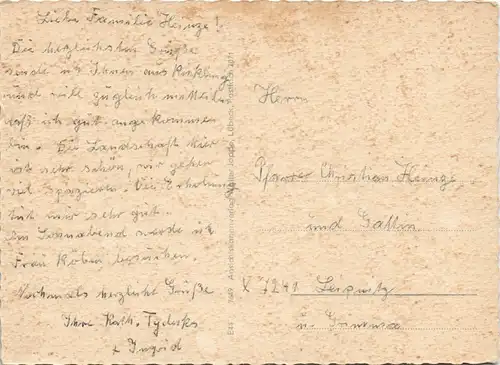 Liebe Familie Heinze!
Die herzlichsten Grüße
sende ich Ihnen aus
und will zugleich mitteilen
daß ich gut angekommen
bin. Die Landschaft hier
ist sehr schön, wir gehen
viel spazieren. Die Erholung
tut mir sehr gut.
Am Sonnabend werde ich
Frau besuchen.
Nochmals herzlichst Grüße
Ihre Kath.
+ Ingrid
Herrn
Pfarrer Christian Heinze
und Gattin
X 7241 Leipnitz
ü. Grimma